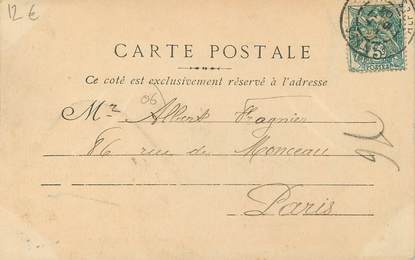 12 €
CARTE POSTALE
Ce coté est exclusivement réservé à l'adresse
06
Mr Albert Fragnier
86 rue de Monceau
Paris